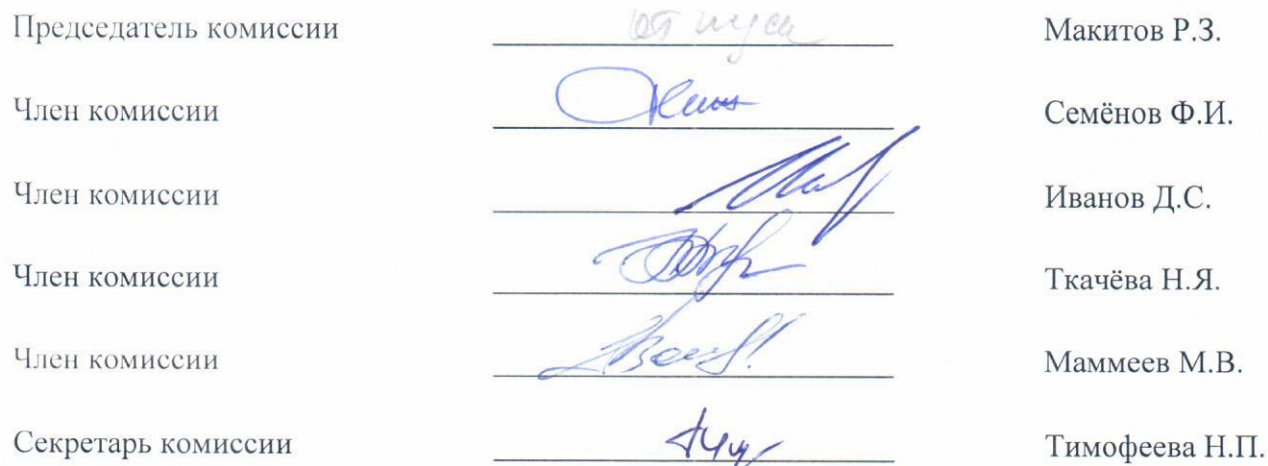 Председатель комиссии отпуск Макитов Р.З.
Член комиссии Семёнов Ф.И.
Член комиссии Иванов Д.С.
Член комиссии Ткачёва Н.Я.
Член комиссии Маммеев М.В.
Секретарь комиссии Тимофеева Н.П.